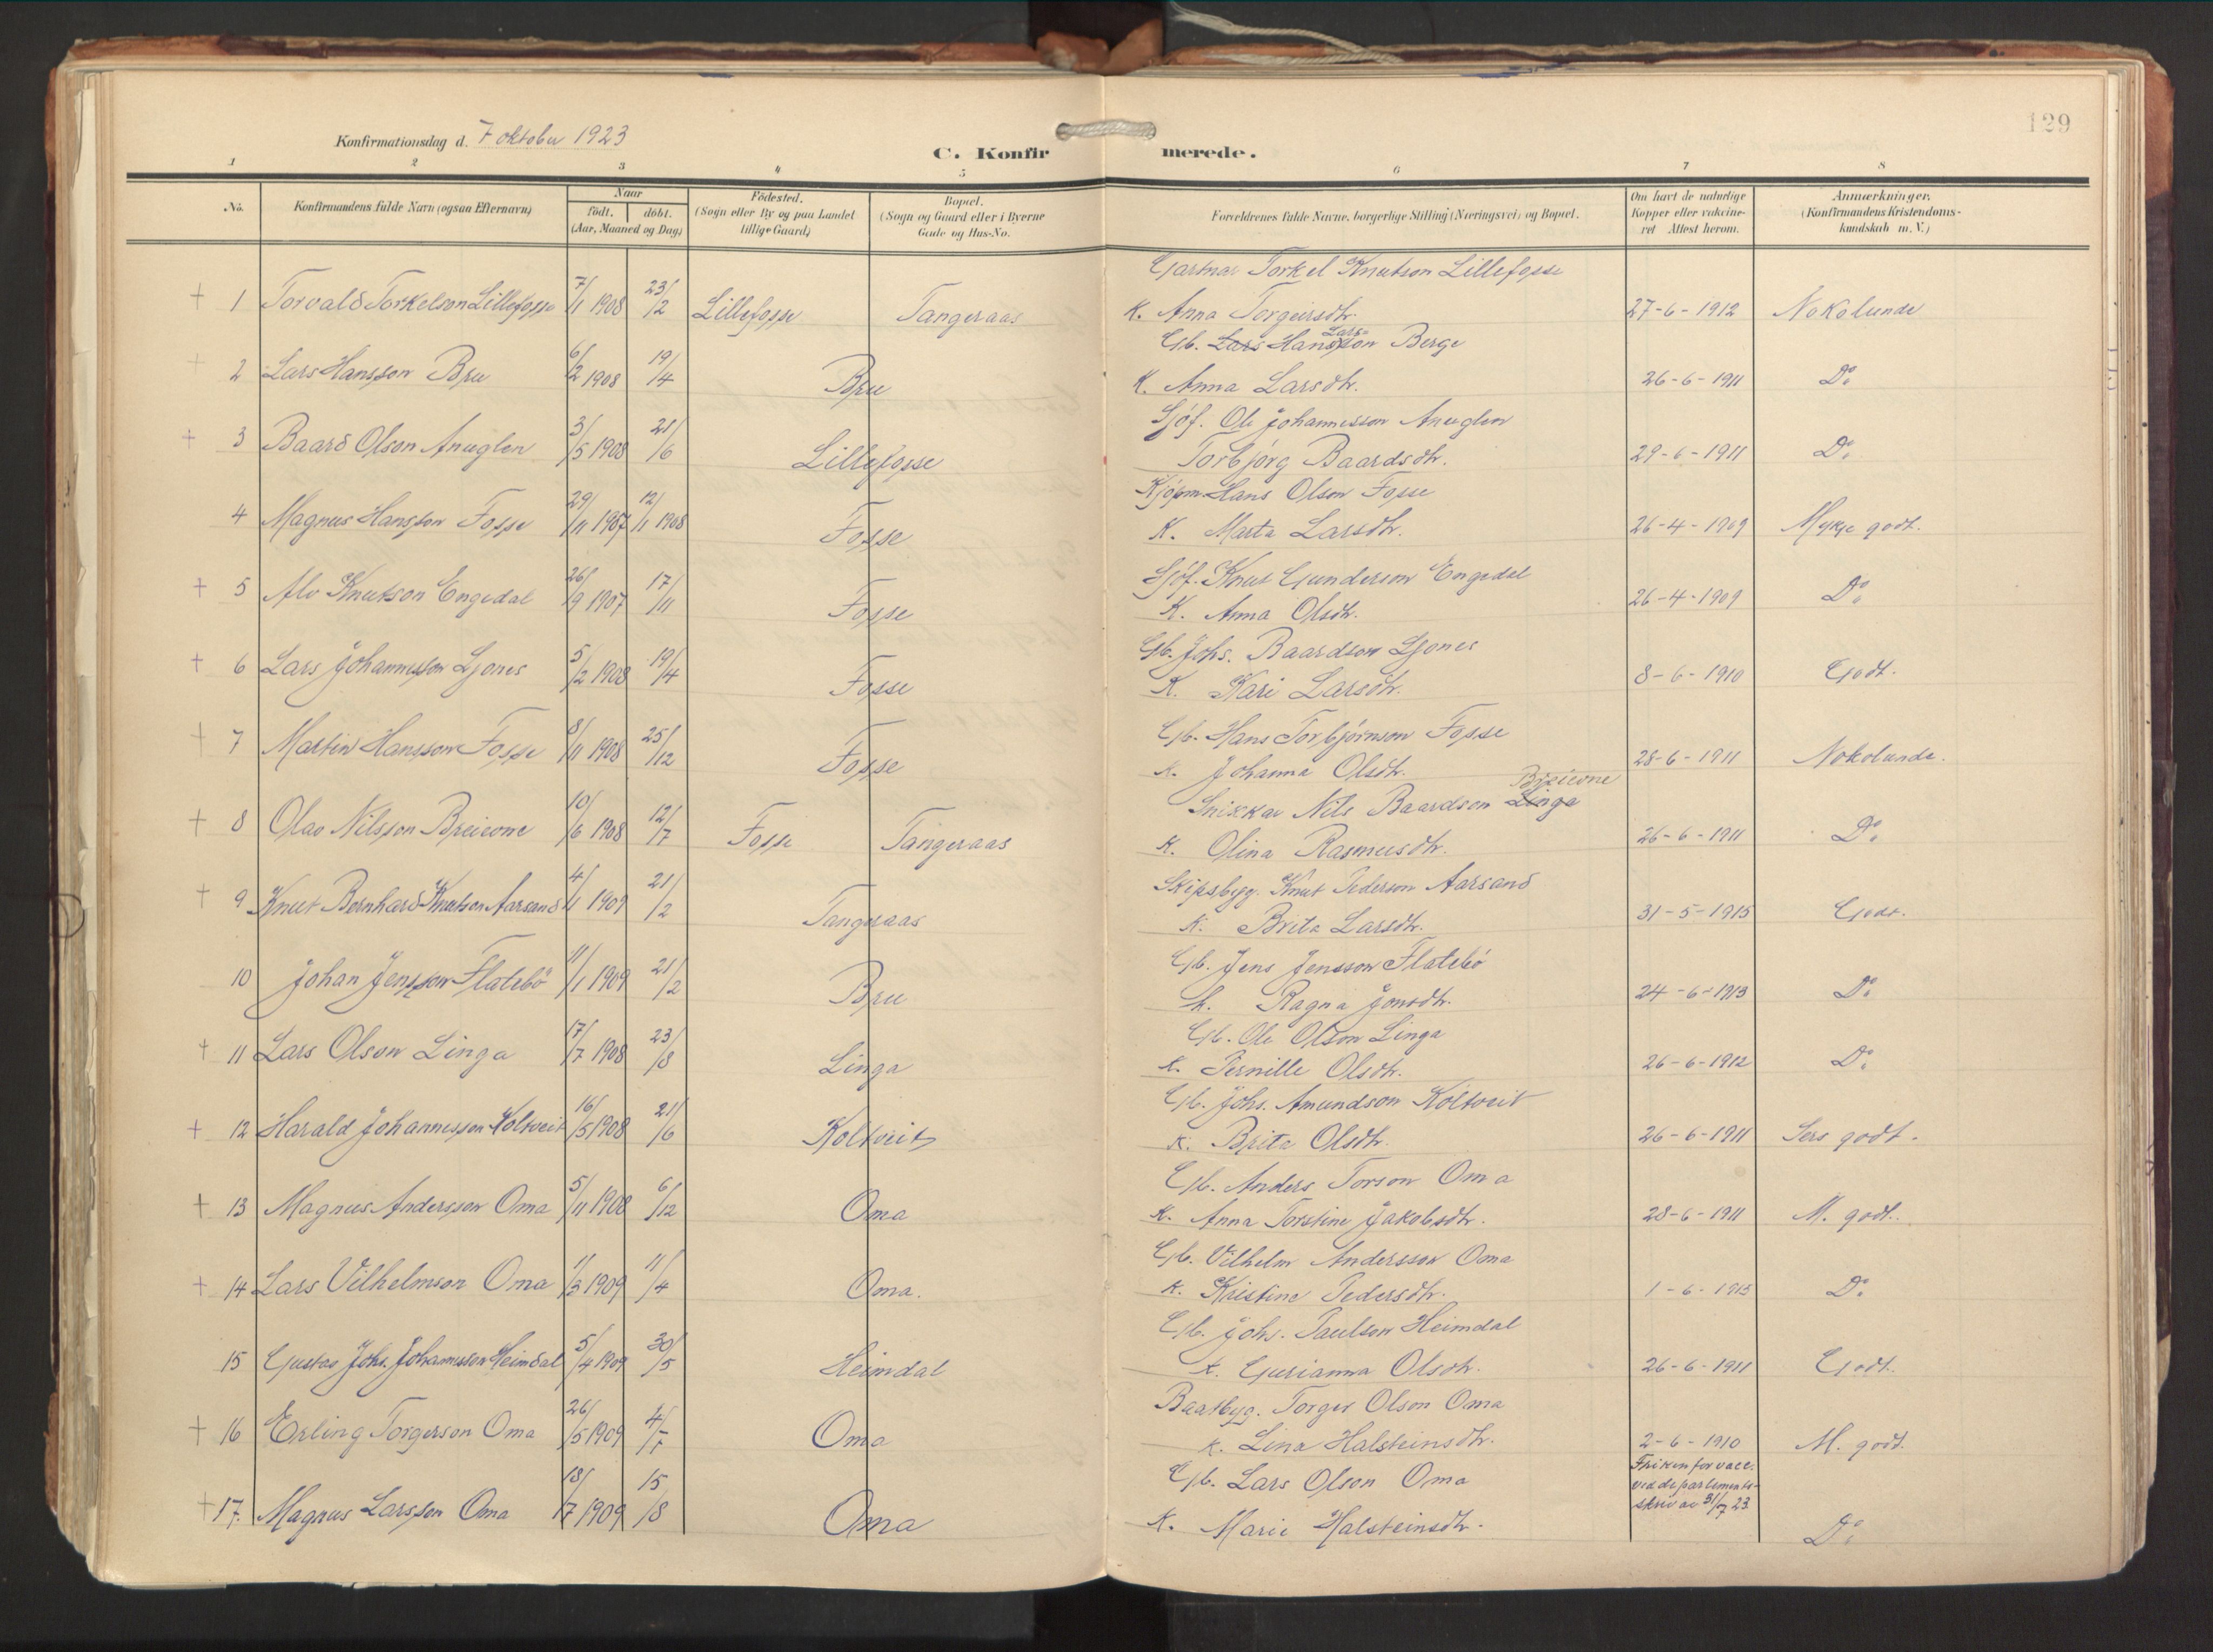 129
Konfirmationsdag d. 7 oktober 1923
C. Konfirmerede.
1 2 3 4 5 6 7 8
No. Konfirmandens fulde Navn (ogsaa Efternavn) Naar født. døbt. (Aar, Maaned og Dag) Fødested. (Sogn eller By og paa Landet tillige Gaard) Bopæl. (Sogn og Gaard eller i Byerne Gade og Hus-No. Forældrenes fulde Navne, borgerlige Stilling (Næringsvei) og Bopæl. Om havt de naturlige Kopper eller vakcineret Attest herom. Anmærkninger. (Konfirmandens Kristendomskundskab m. V.)
Gartnar Torkel Knutson Lillefosse
+ 1 Torvald Torkelson Lillefosse 7/1 1908 23/2 Lillefosse Tangeraas K. Anna Torgeirsdtr. 27-6-1912 Nokolunde
Gb. Lars Hansson Lars- Berge
+ 2 Lars Hansson Bru 6/2 1908 19/4 Bru K. Anna Larsdtr. 26-6-1911 Do
Sjöf. Ole Johannesson Anuglen
+ 3 Baard Olson Anuglen 3/5 1908 21/6 Lillefosse Torbjörg Baardsdtr. 29-6-1911 Do
Kjöpm. Hans Olson Fosse
4 Magnus Hansson Fosse 29/11 1907 12/1 1908 Fosse K. Marta Larsdtr. 26-4-1909 Mykje godt.
Sjöf. Knut Gunderson Engedal
+ 5 Alv Knutson Engedal 26/9 1907 17/11 Fosse K. Anna Olsdtr. 26-4-1909 Do
Gb. Johs. Baardson Ljones
+ 6 Lars Johannesson Ljones 5/2 1908 19/4 Fosse K. Kari Larsdtr. 8-6-1910 Godt.
Gb. Hans Torbjörnson Fosse
+ 7 Martin Hansson Fosse 8/11 1908 25/12 Fosse K. Johanna Olsdtr. 28-6-1911 Nokolunde.
Snikkar Nils Baardson Linga Breivone
+ 8 Olav Nilsson Breivone 10/6 1908 12/7 Fosse Tangeraas K. Olina Rasmusdtr. 26-6-1911 Do
Skipsbyg. Knut Pederson Aarsand
+ 9 Knut Bernhard Knutson Aarsand 4/1 1909 21/2 Tangeraas K. Brita Larsdtr. 31-5-1915 Godt.
Gb. Jens Jensson Flatebö
10 Johan Jensson Flatebö 11/1 1909 21/2 Bru K. Ragna Jonsdtr. 24-6-1913 Do
Gb. Ole Olson Linga
+ 11 Lars Olson Linga 17/7 1908 23/8 Linga K. Pernille Olsdtr. 26-6-1912 Do
Gb. Johs. Amundson Koltveit
+ 12 Harald Johannesson Koltveit 16/5 1908 21/6 Koltveit K. Brita Olsdtr. 26-6-1911 Sers godt.
Gb. Anders Torson Oma
+ 13 Magnus Andersson Oma 5/11 1908 6/12 Oma K. Anna Torstine Jakobsdtr. 28-6-1911 M. godt.
Gb. Vilhelm Andersson Oma
+ 14 Lars Vilhelmson Oma 1/3 1909 11/4 Oma. K. Kristine Pedersdtr. 1-6-1915 Do
Gb. Johs. Paulson Heimdal
15 Gustav Johs. Johannesson Heimdal 5/4 1909 30/5 Heimdal K. Gurianna Olsdtr. 26-6-1911 Godt.
Baatbyg. Torger Olson Oma
+ 16 Erling Torgerson Oma 26/5 1909 4/7 Oma K. Lina Halsteinsdtr. 2-6-1910 M. godt.
Gb. Lars Olson Oma Friken for vacc. ved departements-skriv av 31/7 23.
+ 17. Magnus Larsson Oma 18/7 1909 15/8 Oma K. Marie Halsteinsdtr. Do